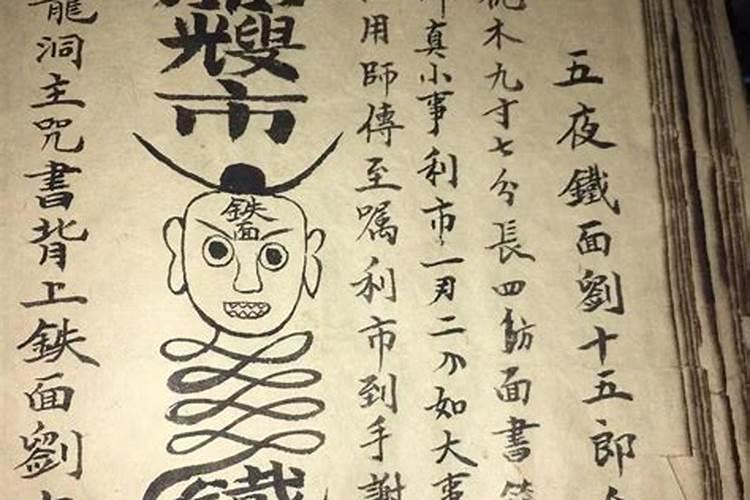 五夜鐵面劉十五郎
木九寸七分長四 面書
真小事利市一刃二 如大事
用師傳至嘱利市到手謝
市
鉄面
龍洞主咒書背上鉄面劉